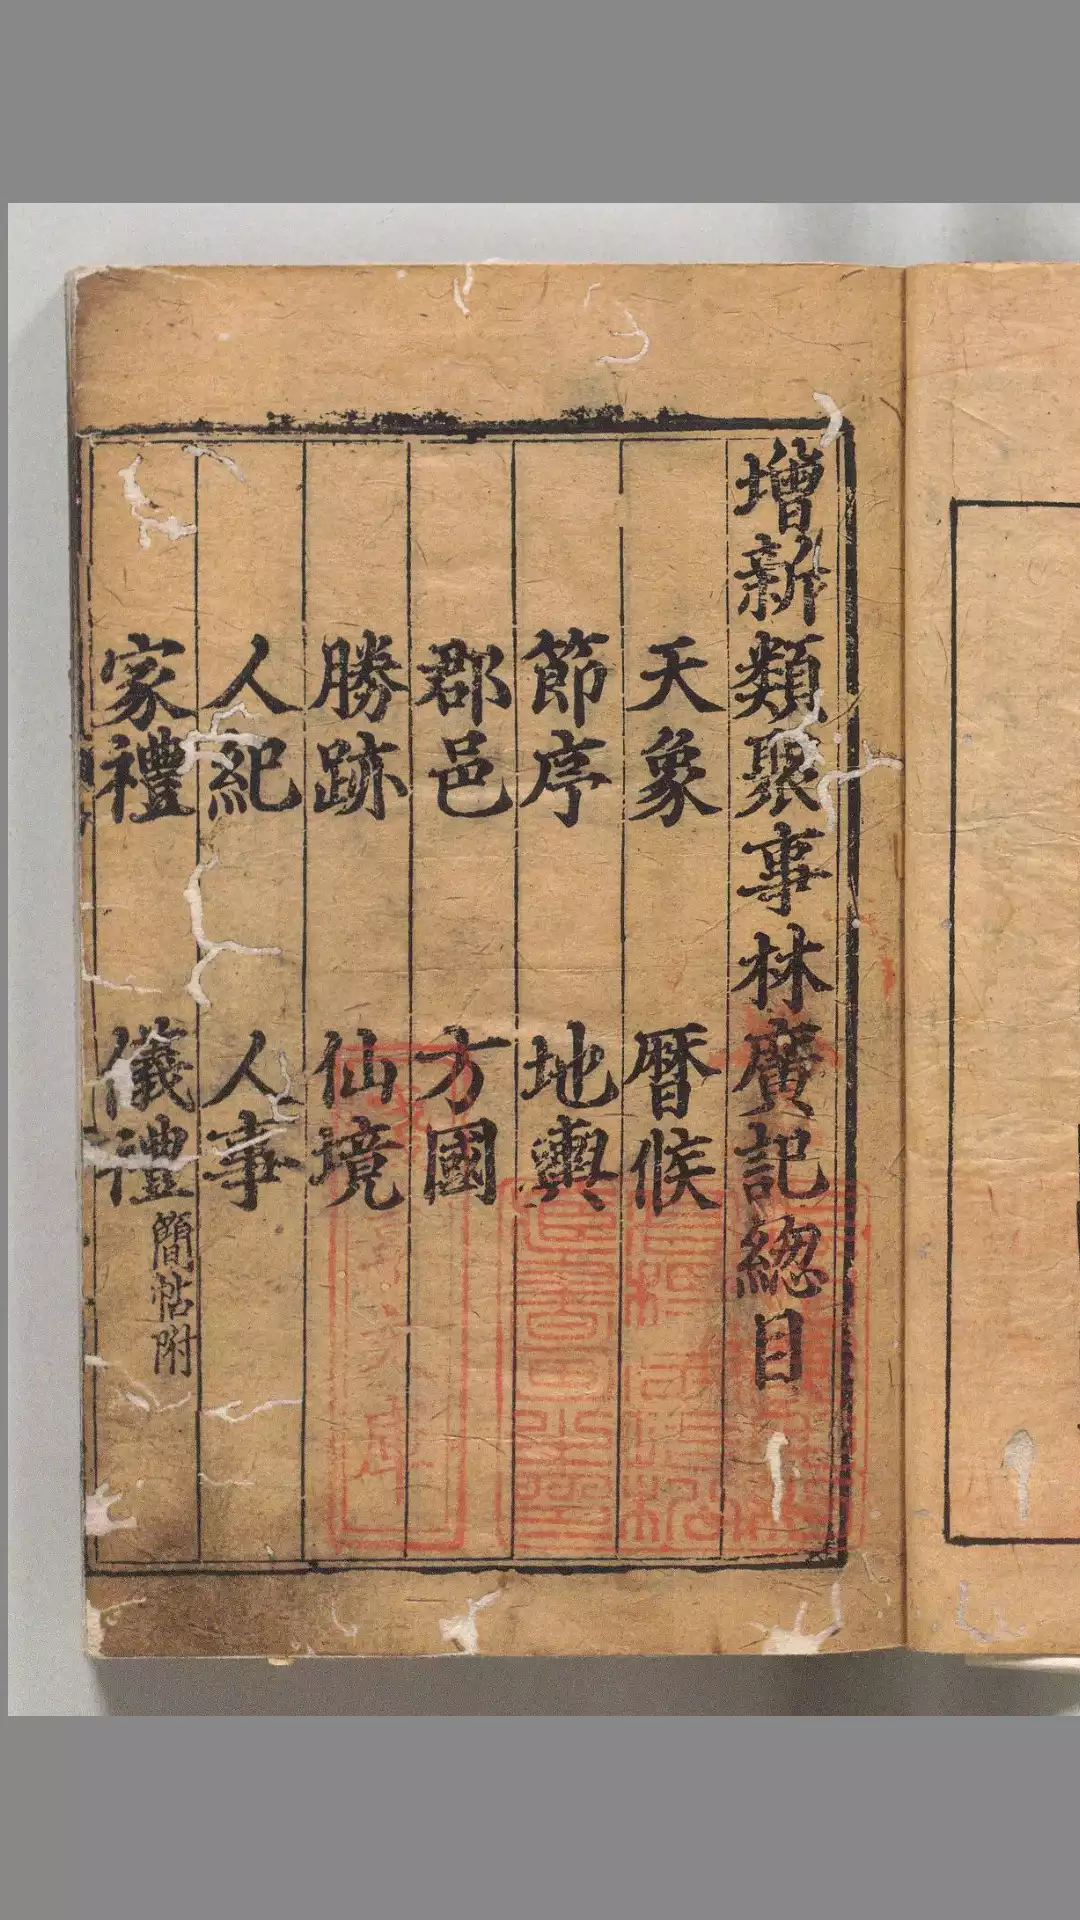 增新類聚事林廣記緫目
天象 暦候
節序 地輿
郡邑 方國
勝跡 仙境
人紀 人事
家禮 儀禮 簡帖附